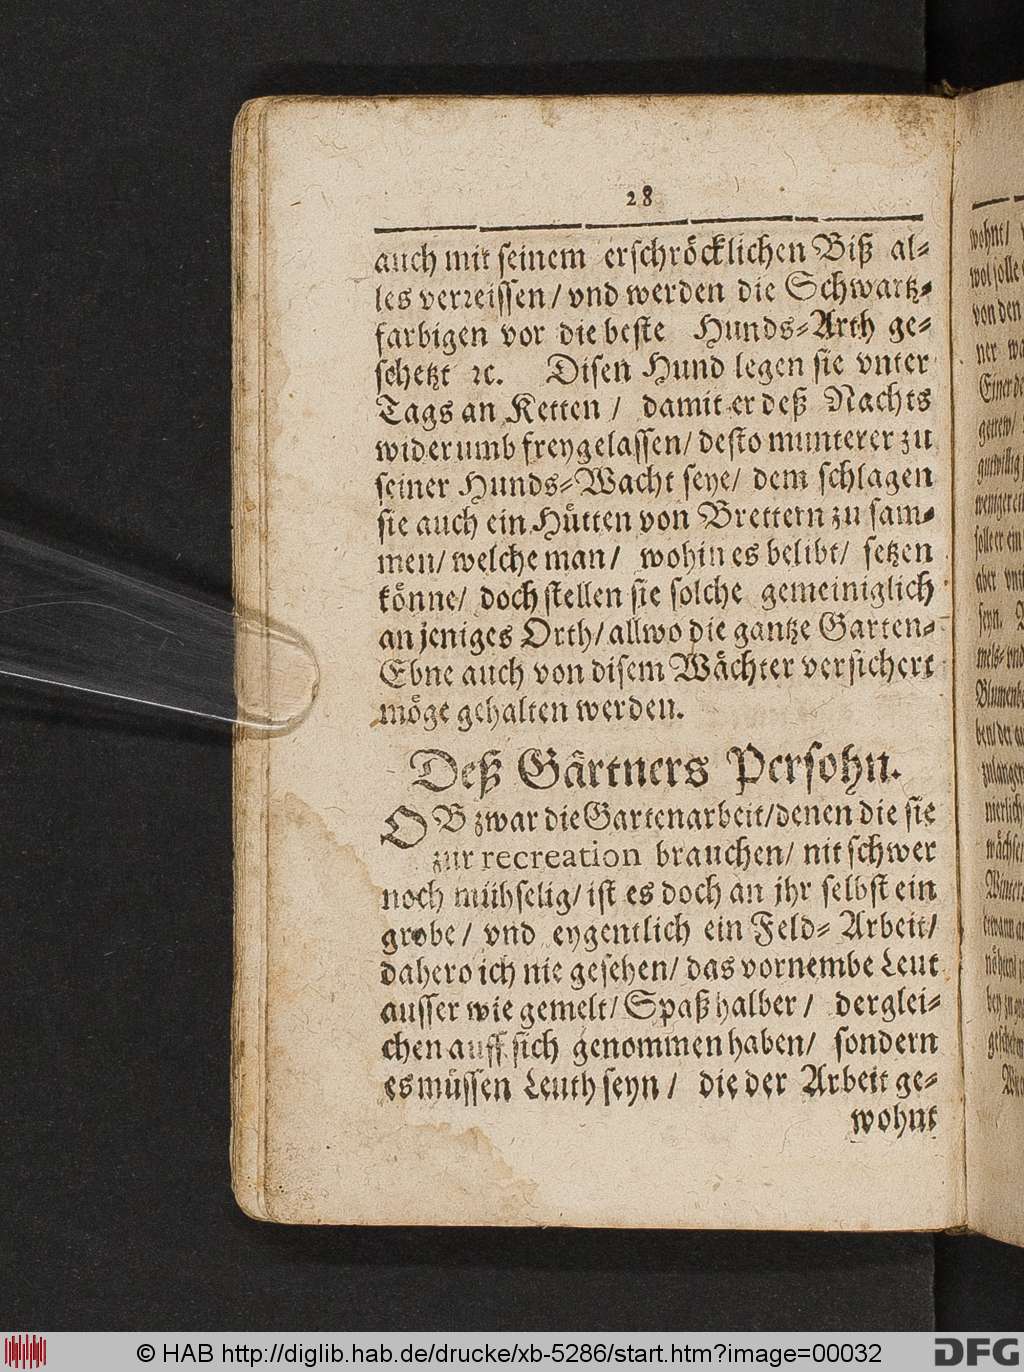 28
auch mit seinem erschröcklichen Biß al-
les verreissen / vnd werden die Schwartz-
farbigen vor die beste Hunds-Arth ge-
schetzt ꝛc. Disen Hund legen sie vnter
Tags an Ketten / damit er deß Nachts
widerumb freygelassen / desto munterer zu
seiner Hunds-Wacht seye / dem schlagen
sie auch ein Hütten von Brettern zu sam-
men / welche man / wohin es belibt / setzen
könne / doch stellen sie solche gemeiniglich
an jeniges Orth / allwo die gantze Garten-
Ebne auch von disem Wächter versichert
möge gehalten werden.
Deß Gärtners Persohn.
OB zwar die Gartenarbeit / denen die sie
zur recreation brauchen / nit schwer
noch mühselig / ist es doch an jhr selbst ein
grobe / vnd eygentlich ein Feld-Arbeit /
dahero ich nie gesehen / das vornembe Leut
ausser wie gemelt / Spaß halber / derglei-
chen auff sich genommen haben / sondern
es müssen Leuth seyn / die der Arbeit ge-
wohnt
wohnt /
von den
© HAB http://diglib.hab.de/drucke/xb-5286/start.htm?image=00032
DFG